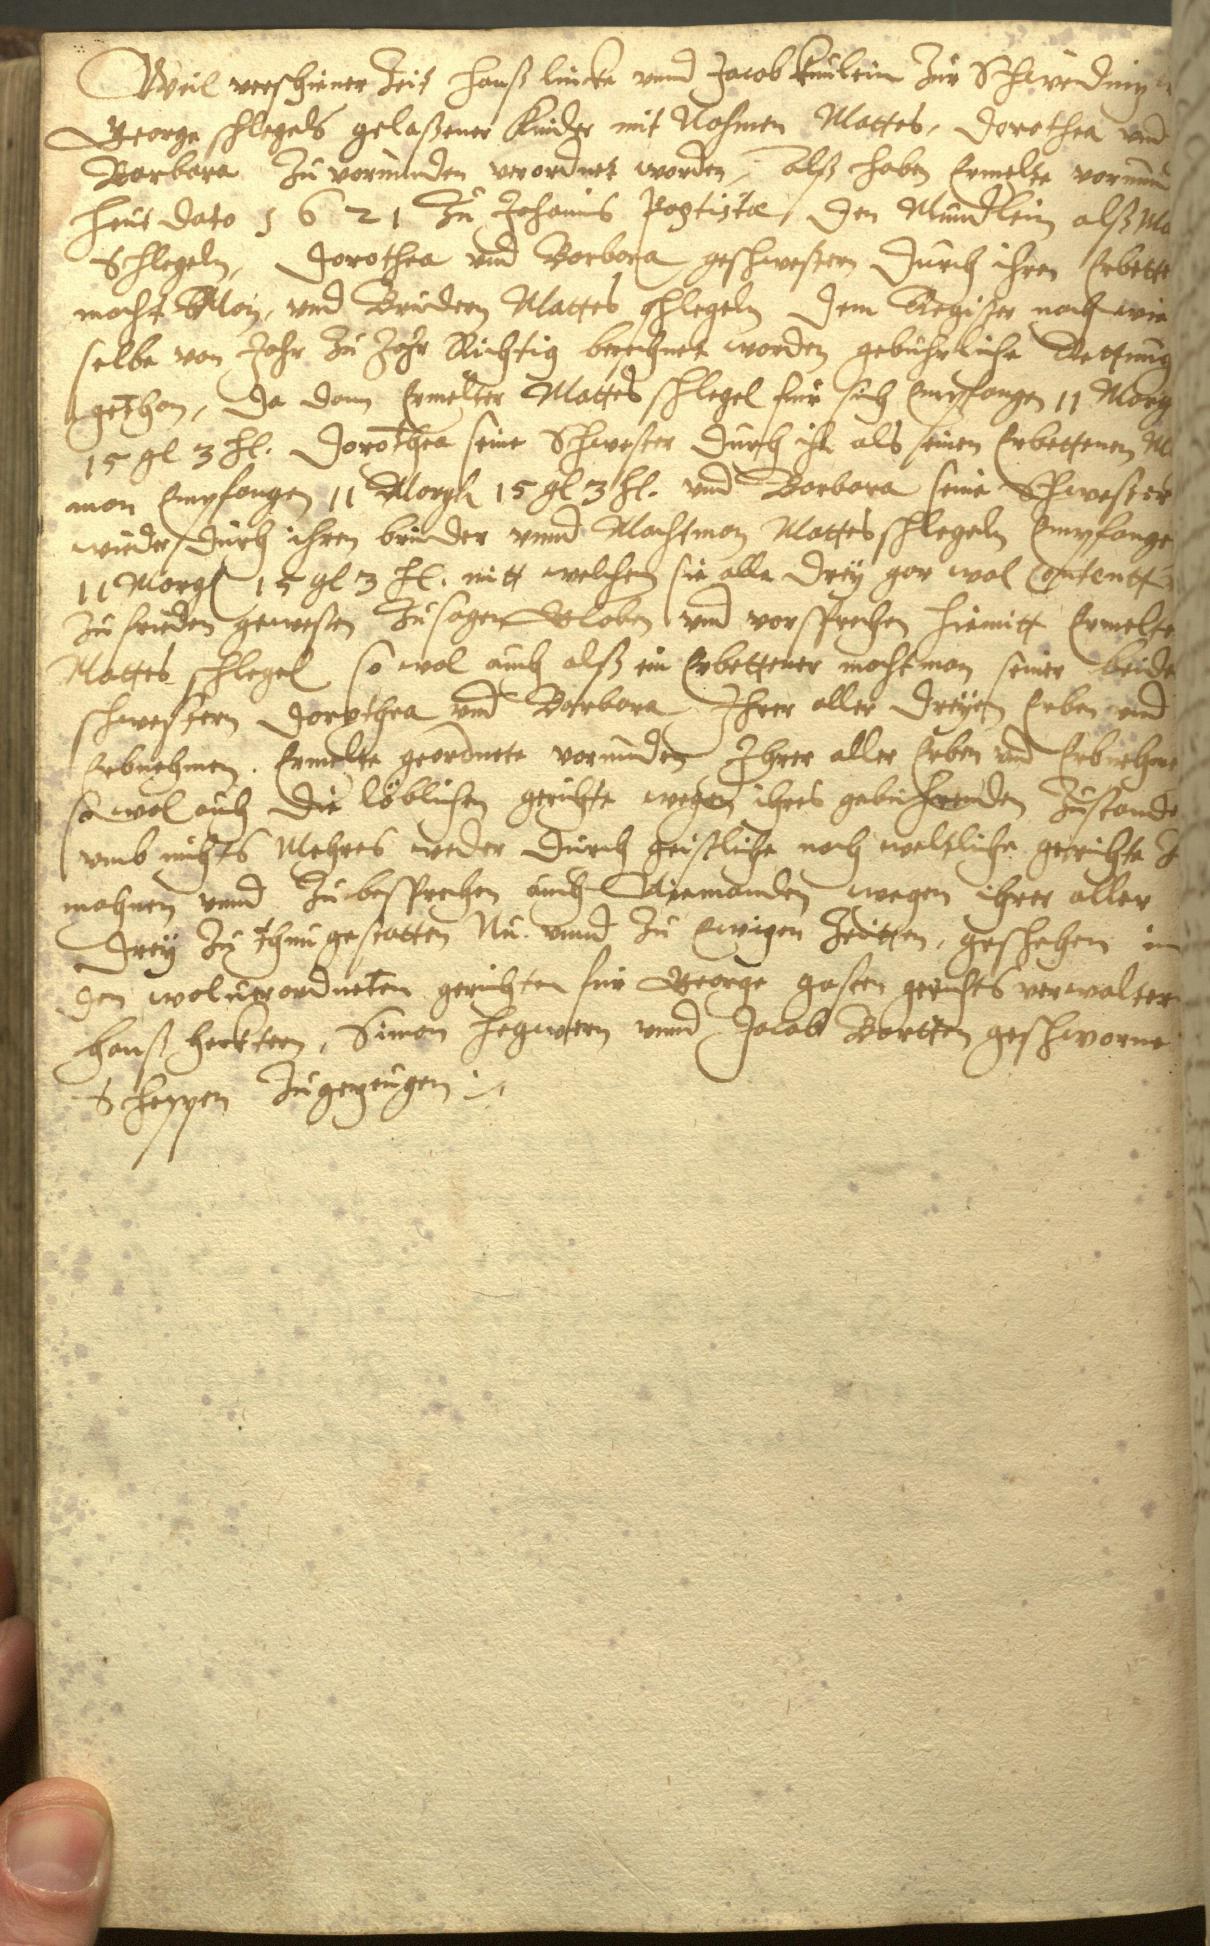 Weil verschiener Zeit Hanß Lincke vnnd Jacob Knülein Zur Schwednitz
George schlegels gelaßener Kinder mit Nahmen Mattes, Dorothea vnd
Barbara Zu vormunden verordnet worden, Alß haben Ermelte vormund
heut Dato 1 6 2 1 Zu Johannis Baptistæ, Den Mündlein alß Ma
Schlegeln, Dorothea vnd Barbara geschwestern Durch ihren Erbette
macht Man, vnd Brudern Mattes schlegeln Dem Register nach wie
selbe von Jahr Zu Jahr Richtig berechnet worden gebührliche Rettung
gethan, Da dann Ermelter Mattes schlegel für sich Empfangen 11 Marg
15 gl 3 hl. Dorothea seine Schwester Durch ihn als seinen Erbettenen M
man Empfangen 11 Margk 15 gl 3 hl. vnd Barbara seine Schwester
wieder Durch ihren bruder vnnd Machtman Mattes schlegeln Empfange
11 Margk 15 gl 3 hl. mitt welchen sie alle Drey gar wol Contentt
Zu frieden gewesen Zusagen Globen vnd vorsprechen hiemitt Ermelte
Mattes schlegel so wol auch alß ein Erbettener machtman seiner beide
schwestern Dorothea vnd Barbara Ihrer aller Dreyen Erben vnd
Erbnehmen. Ermelte geordnete vormunden Ihrer aller Erben vnd Erbnehme
so wol auch Die löblichen gerichte wegen ihres gebührenden Zustande
vmb nichts Mehres weder Durch geistliche noch weltliche gerichte Z
mahnen vnnd Zu besprechen auch Niemanden wegen ihrer aller
Drey Zu thun gestatten Nu vnnd Zu Ewigen Zeitten, geschehen in
Den wolverordneten gerichten für George gasten gerichts verwalter
Hanß Herktern, Simon Hegwern vnnd Jacob Bartten geschworne
Scheppen Zugezeugen